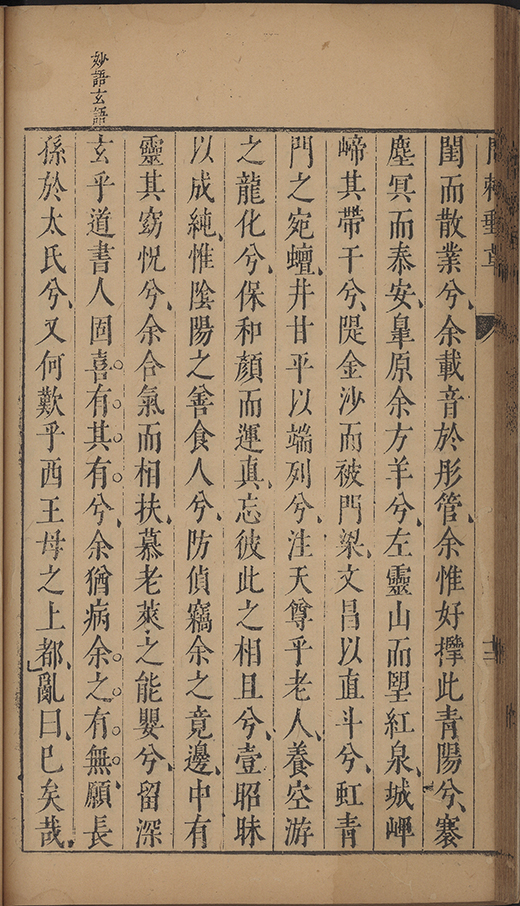 閨而散業兮余載音於彤管余惟好㩓此青陽兮褰
塵冥而泰安皐原余方羊兮左靈山而朢紅泉城岬
崹其帶干兮隄金沙而被門梁文昌以直斗兮虹青
門之宛蟺井甘平以端列兮注天尊乎老人養空游
之龍化兮保和顏而運真忘彼此之相且兮壹昭昧
以成純惟陰陽之善食人兮防偵竊余之竟邊中有
靈其窈怳兮余合氣而相扶慕老萊之能嬰兮留深
玄乎道書人固喜有其有兮余猶病余之有無願長
孫於太氏兮又何歎乎西王母之上都亂曰已矣哉
妙語玄語